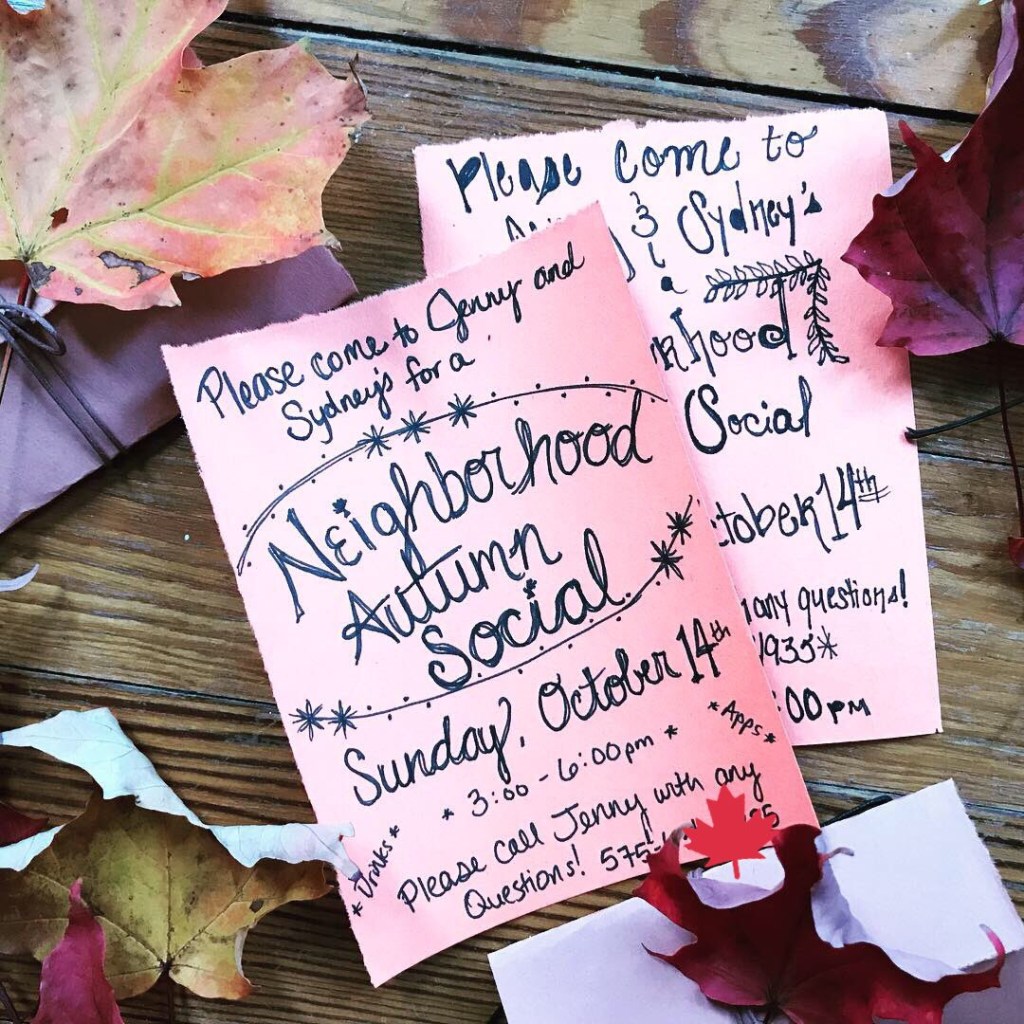 Please come to Jenny and
Sydney's for a
Neighborhood
Autumn
Social
Sunday, October 14th
* 3:00 - 6:00pm *
*Apps*
*Drinks*
Please call Jenny with any
Questions! 575-
Please come to
& Sydney's
a
hood
Social
tober 14th
any questions!
1935*
:00 pm